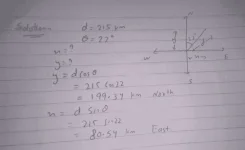 Solution:- d = 215 km
θ = 22°
x = ?
y = ?
y = d cos θ
= 215 cos 22
= 199.34 km North
x = d sin θ
= 215 sin 22
= 80.54 km East